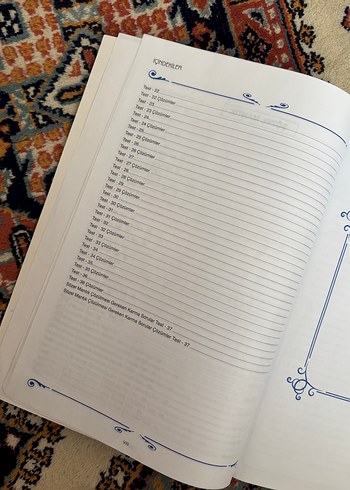 İÇİNDEKİLER
Test - 22
Test - 22 Çözümler
Test - 23
Test - 23 Çözümler
Test - 24
Test - 24 Çözümler
Test - 25
Test - 25 Çözümler
Test - 26
Test - 26 Çözümler
Test - 27
Test - 27 Çözümler
Test - 28
Test - 28 Çözümler
Test - 29
Test - 29 Çözümler
Test - 30
Test - 30 Çözümler
Test - 31
Test - 31 Çözümler
Test - 32
Test - 32 Çözümler
Test - 33
Test - 33 Çözümler
Test - 34
Test - 34 Çözümler
Test - 35
Test - 35 Çözümler
Test - 36
Test - 36 Çözümler
Sözel Mantık Çözülmesi Gereken Karma Sorular Test - 37
Sözel Mantık Çözülmesi Gereken Karma Sorular Çözümler Test - 37